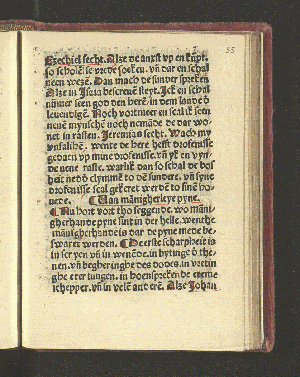 55
Ezechiel secht. Alze de anxst vp en kũpt.
so scholē se vrede soekeu. vñ dar en schal
geen wezē. Dan mach de sunder spreken
Alze in Isaia bescreuē steyt. Ick en schal
nũmer seen god den herē in dem lande ð
leuendigē. Noch vortmeer en scal ik seen
neuē mynschē noch nemāde de dar wo-
net in rasten. Jeremias secht. Wach my
vnsalihē. wente de here hefft drofenisse
gedaen vp myne drofenisse. vñ yk en vyn-
de nene raste. warlik dan so schal de bos
heit nedð clymmē to dē sundere. vñ syne
drofenisse scal gekeret werdē to sinē ho-
uede. Van mānigherleye pyne.
Nu hort vort tho seggende. wo māni
gherhande pyne sint in der helle. wente
mānigherhande is dar de pyne mede be-
swaret werden. De erste scharpheit is
in ser yen vñ in wenēde. in bytinge ð the-
nen. vñ begheringhe des dodes. in vretin
ghe erer tungen. in boenspreken de ereme
schepper. vñ in velē andē erē. Alze Johan